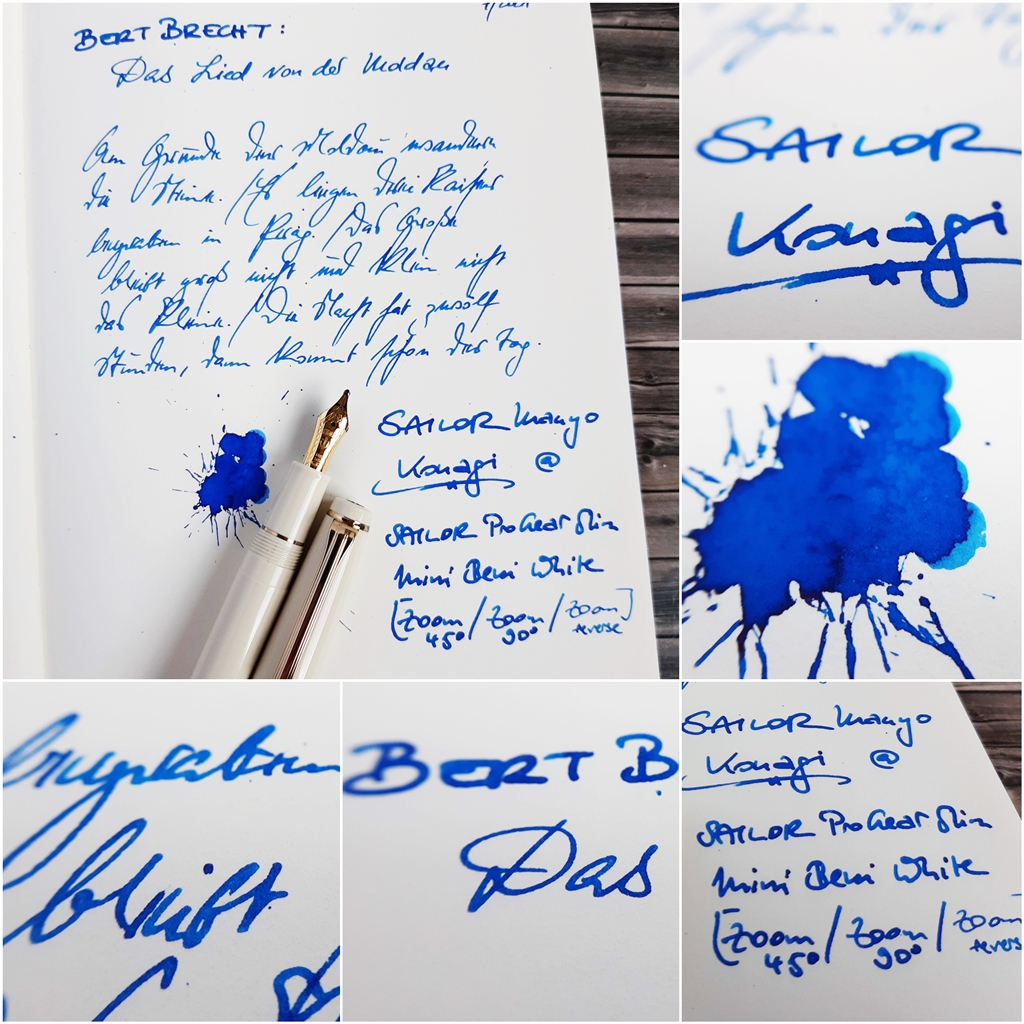 BERT BRECHT:
Das Lied von der Moldau
Am Grunde der Moldau wandern
die Steine. / Es liegen drei Kaiser
begraben in Prag. / Das Große
bleibt groß nicht und klein nicht
das Kleine. / Die Nacht hat zwölf
Stunden, dann kommt schon der Tag.
SAILOR Manyo
Konagi @
SAILOR ProGear Slim
mini Beni White
[Zoom / Zoom / Zoom]
45° 90° reverse
SAILOR
Konagi
begraben
bleibt
BERT B
Das
SAILOR Manyo
Konagi @
SAILOR ProGear Slim
mini Beni White
[Zoom / Zoom / Zoom
45° 90° revers